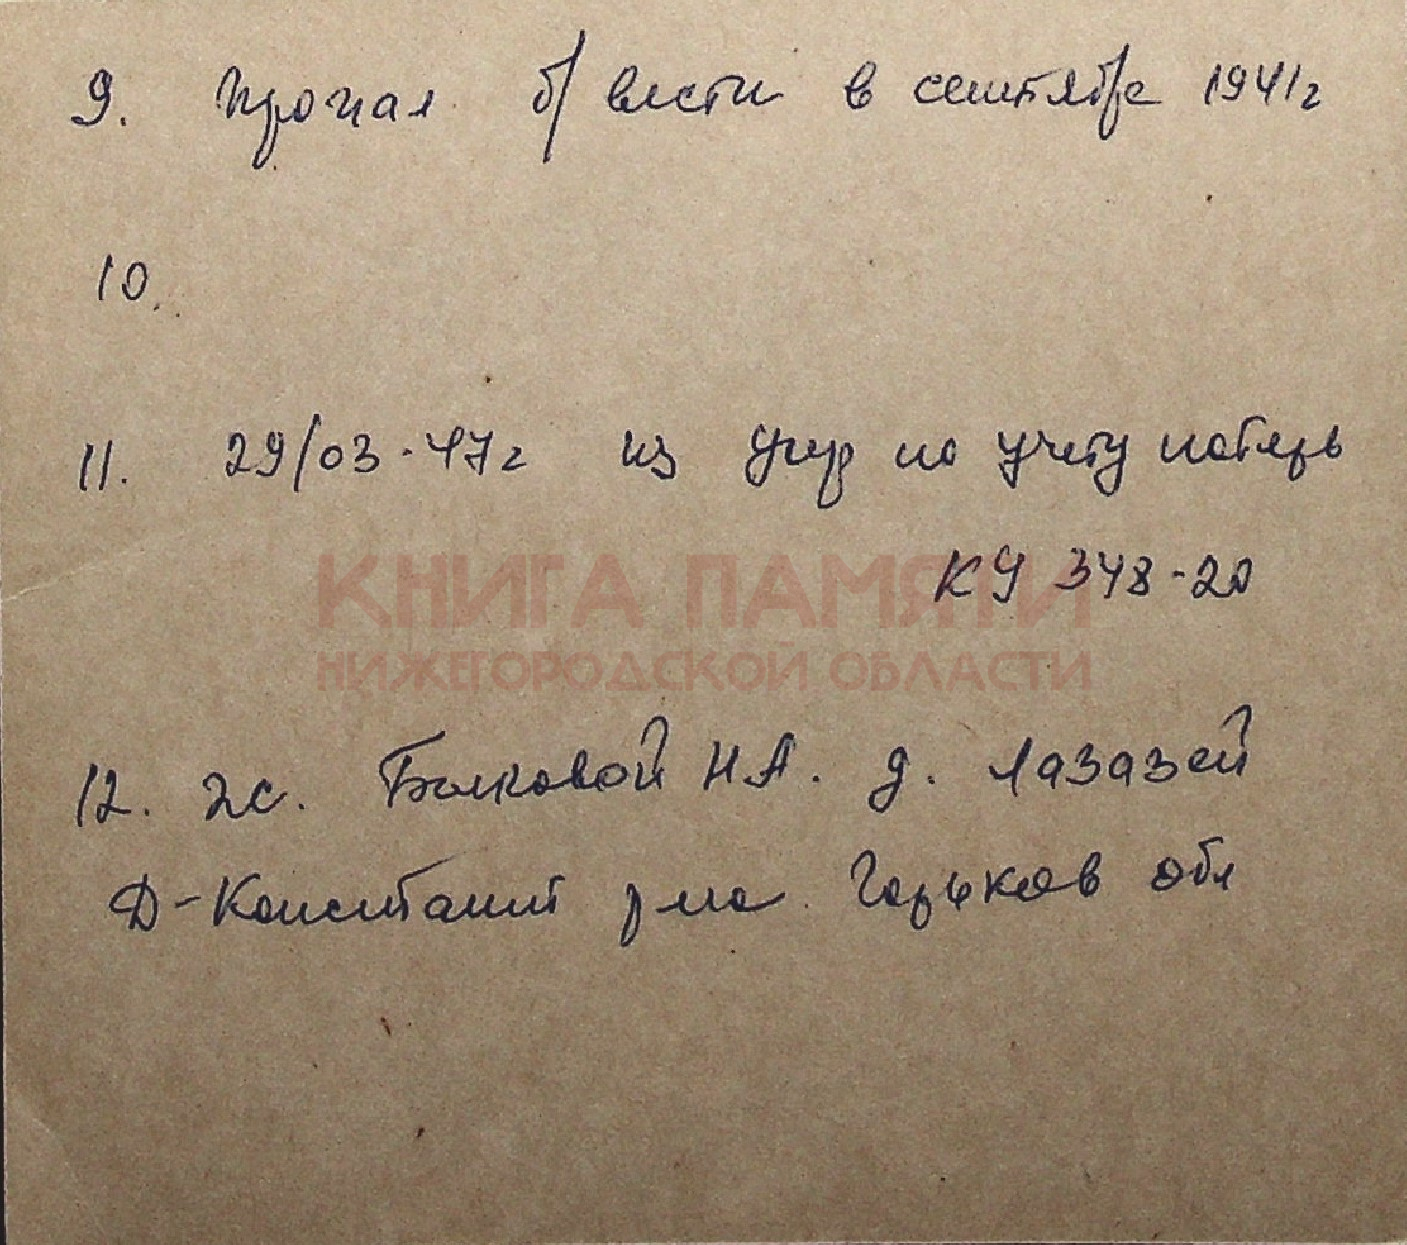 9. Пропал б/ вести в сентябре 1941г
10.
11. 29/03-47г из Упр по учету потерь
КУ 348-20
КНИГА ПАМЯТИ
НИЖЕГОРОДСКОЙ ОБЛАСТИ
12. ж. Н.А. д. Лазазей
Д-Констант р на Горьков обл